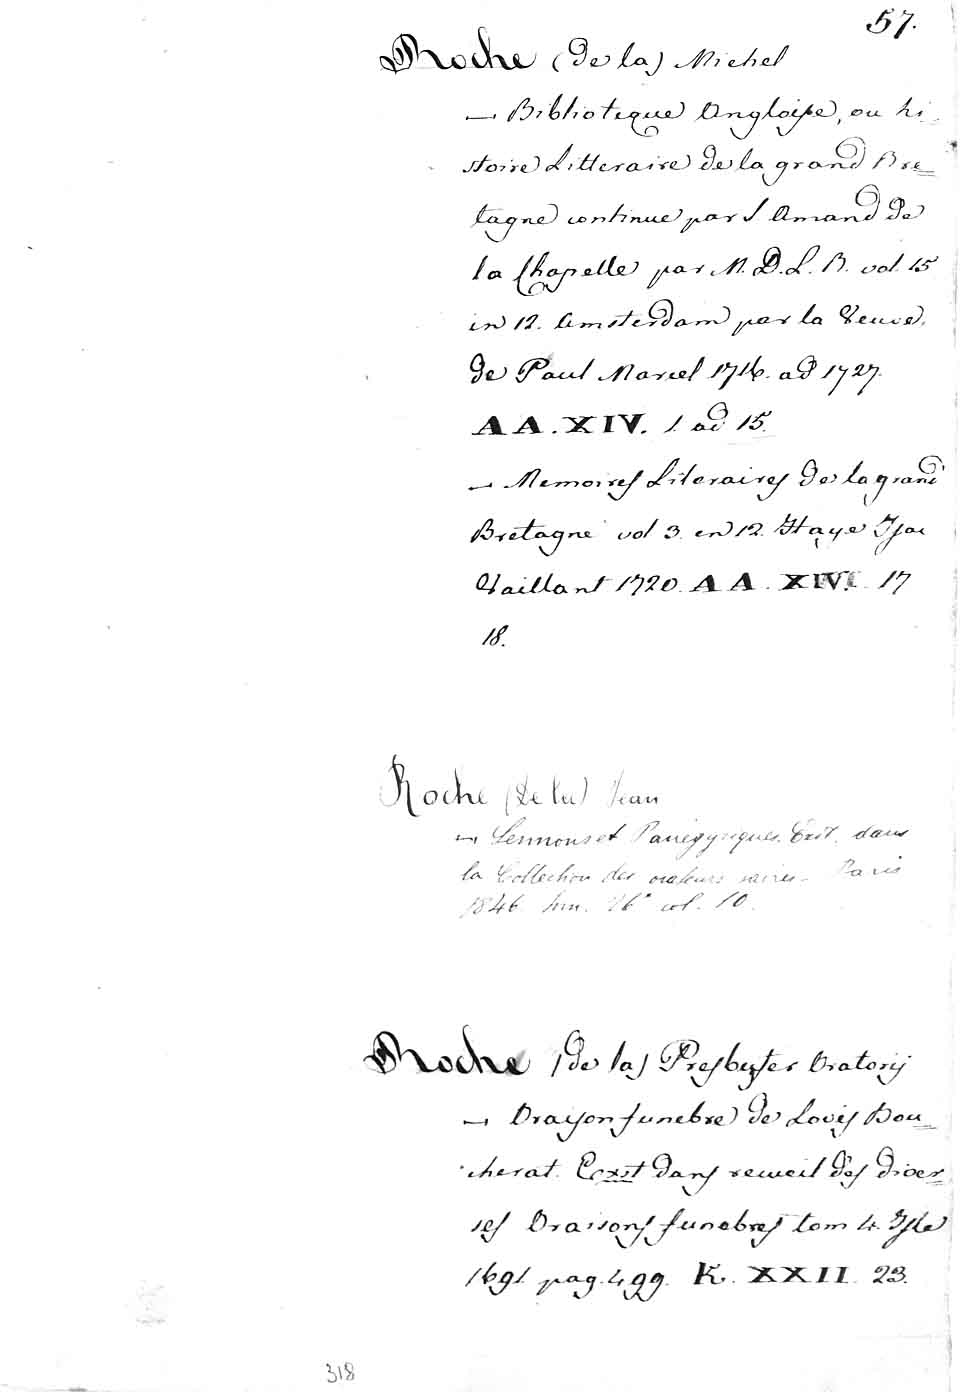 57.
Roche (de la) Michel
— Biblioteque Angloise, ou hi-
stoire Litteraire de la grand Bre=
tagne continue par S Amand de
la Chapelle par M. D. L. R. vol. 15
in 12. Amsterdam par la Veuve
de Paul Marcel 1716. ad 1727.
AA. XIV. 1. ad 15.
— Memoires Literaires de la grand
Bretagne vol 3. en 12. Haye Isac
Vaillant 1720. AA. XIV. 17
18.
Roche (de la) Jean
— Sermons et Panégyriques. Exst. dans
la Collection des orateurs sacrés. Paris
1846. 16° vol. 10.
Roche (de la) Presbyter Oratorij
— Oraison funebre de Lovis Bou=
cherat. Ecxst dans recueil des diver=
ses Oraisons funebres tom 4. Isle
1691. pag. 499. K. XXII. 23.
318